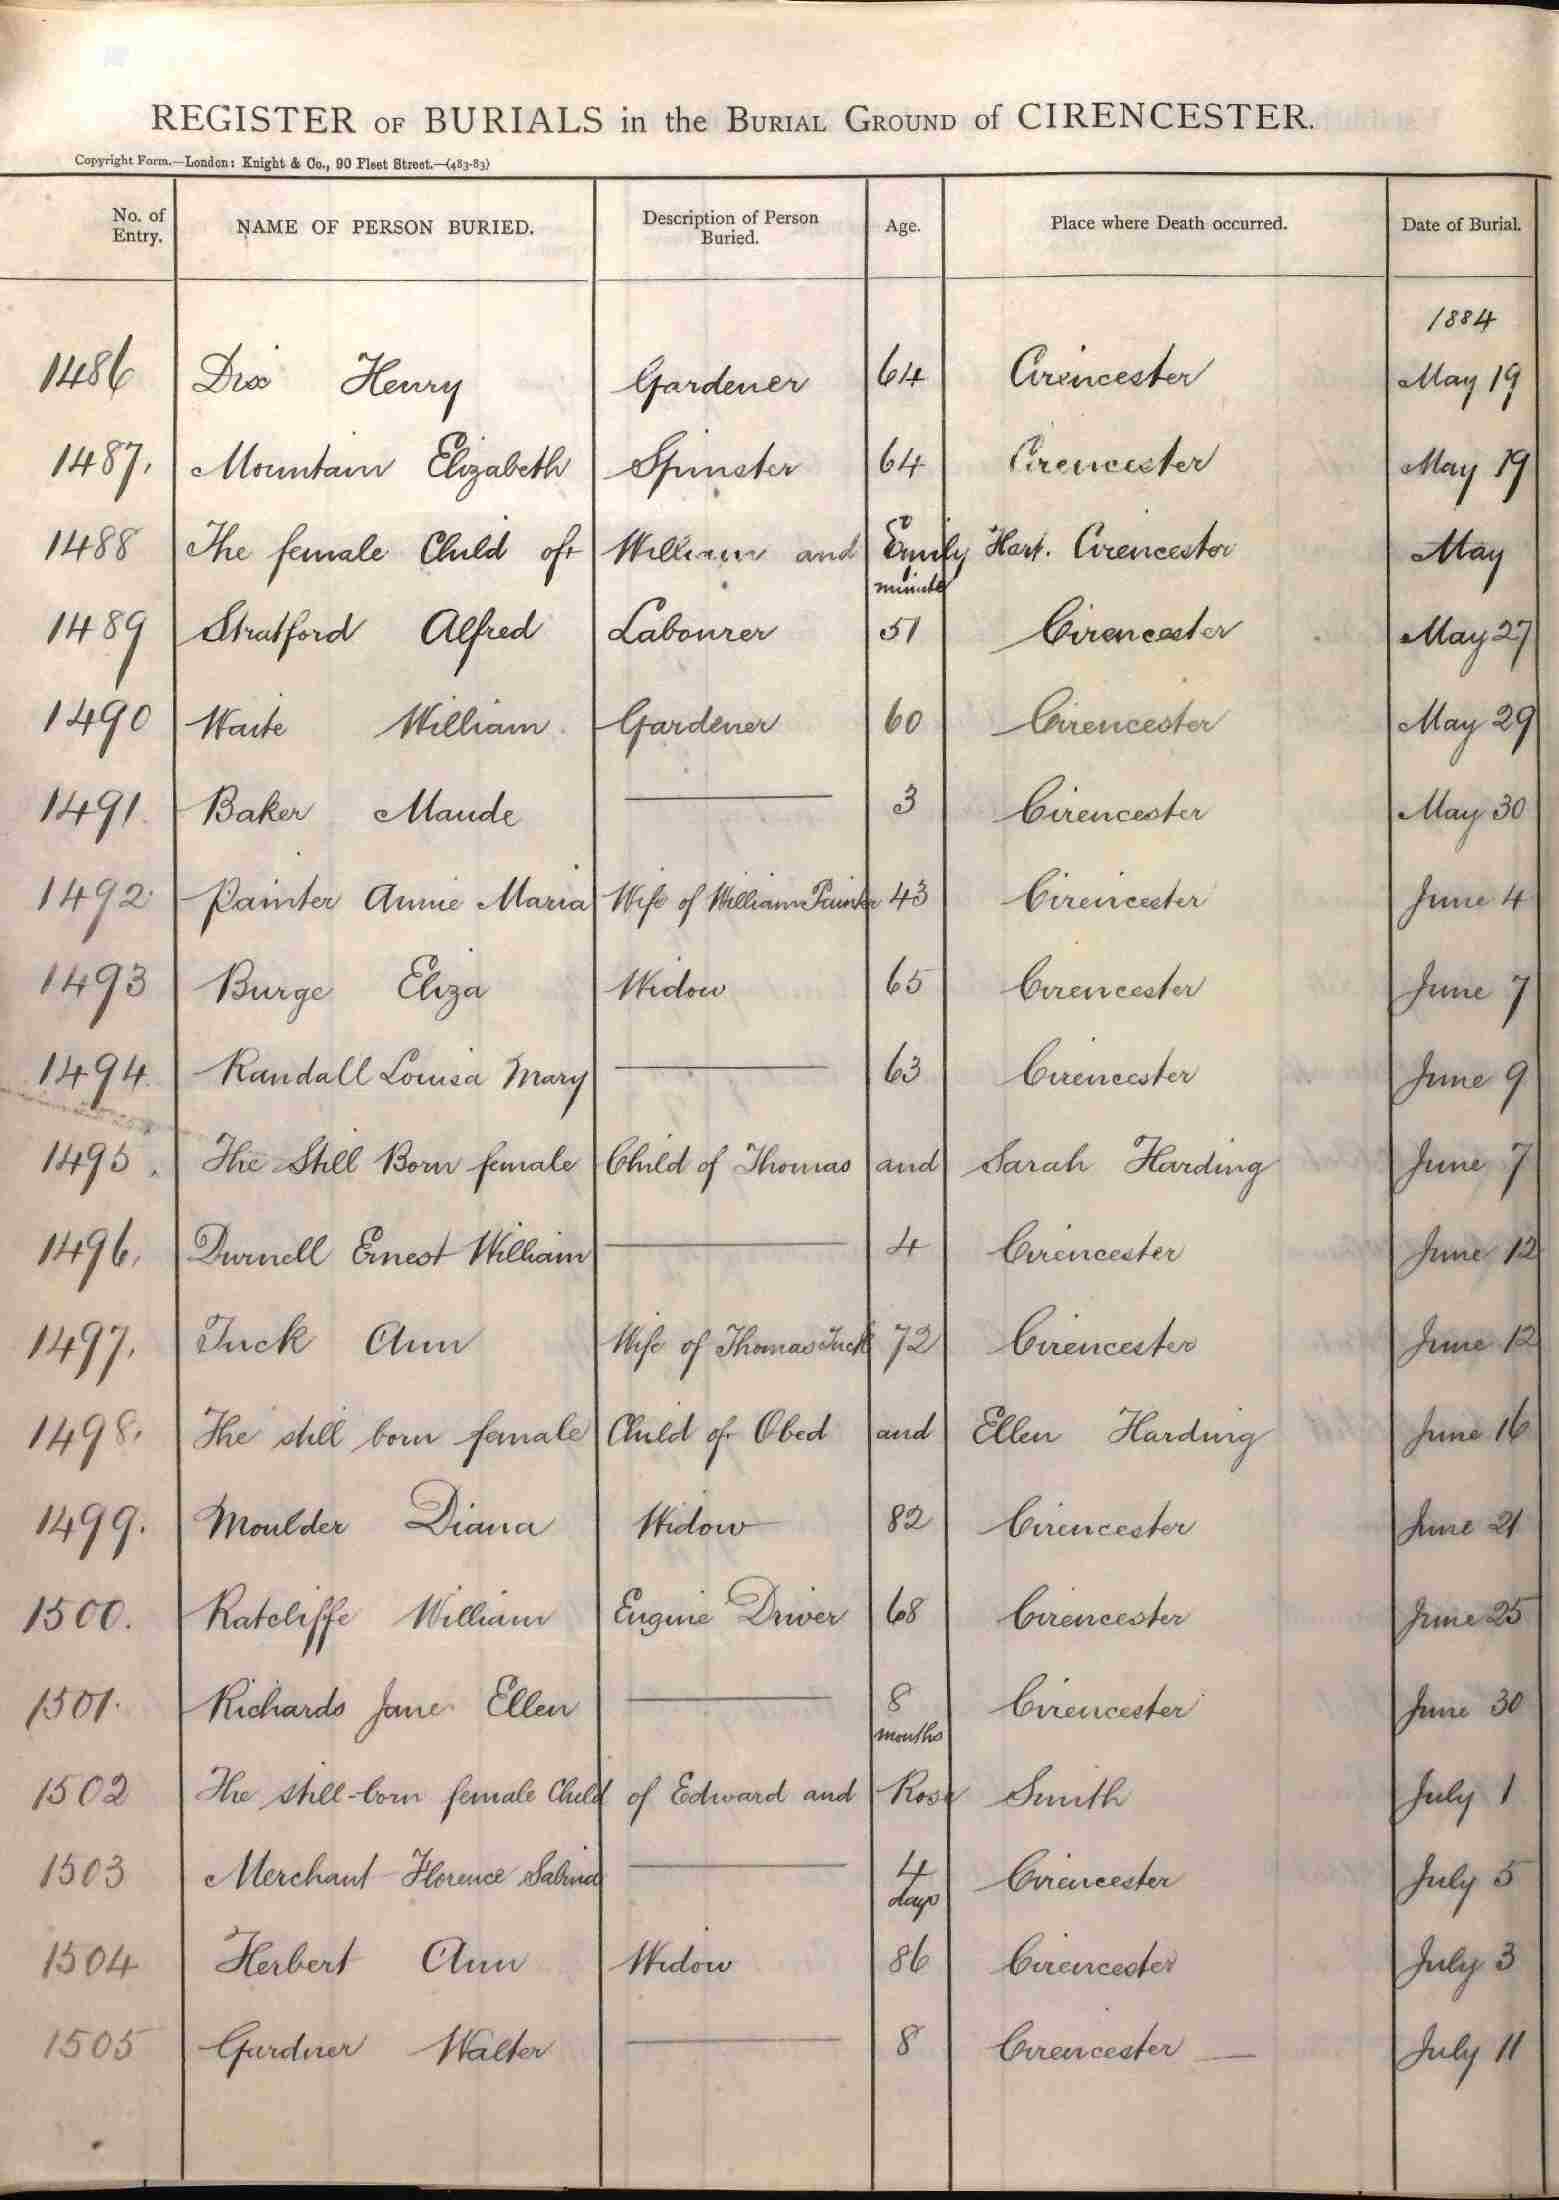 REGISTER OF BURIALS in the BURIAL GROUND of CIRENCESTER.
Copyright Form.—London: Knight & Co., 90 Fleet Street.—(483-83)
No. of Entry. NAME OF PERSON BURIED. Description of Person Buried. Age. Place where Death occurred. Date of Burial.
1884
1486 Dix Henry Gardener 64 Cirencester May 19
1487. Mountain Elizabeth Spinster 64 Cirencester May 19
1488 The female Child of William and Emily Hart. Cirencester May
minute
1489 Stratford Alfred Labourer 51 Cirencester May 27
1490 Waite William Gardener 60 Cirencester May 29
1491. Baker Maude — 3 Cirencester May 30
1492. Painter Annie Maria Wife of William Painter 43 Cirencester June 4
1493 Burge Eliza Widow 65 Cirencester June 7
1494. Randall Louisa Mary — 63 Cirencester June 9
1495. The Still Born female Child of Thomas and Sarah Harding June 7
1496. Durnell Ernest William — 4 Cirencester June 12
1497. Tuck Ann Wife of Thomas Tuck 72 Cirencester June 12
1498. The still born female Child of Obed and Ellen Harding June 16
1499. Moulder Diana Widow 82 Cirencester June 21
1500. Ratcliffe William Engine Driver 68 Cirencester June 25
1501. Richards Jane Ellen — 8 Cirencester June 30
months
1502 The still-born female Child of Edward and Rose Smith July 1
1503 Merchant Florence Sabrina — 4 Cirencester July 5
days
1504 Herbert Ann Widow 86 Cirencester July 3
1505 Gardner Walter — 8 Cirencester — July 11